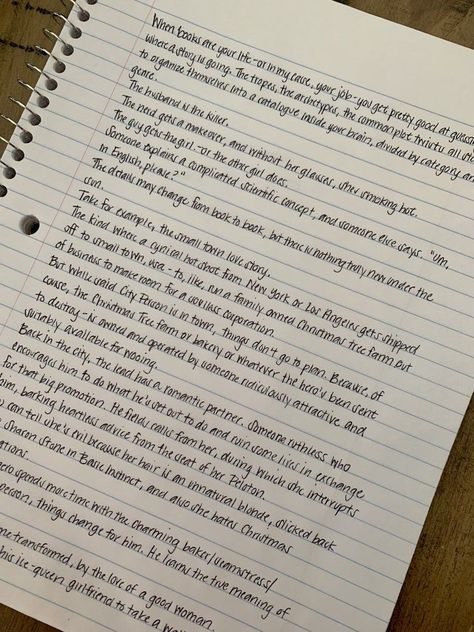 When books are your life-or in my case, your job-you get pretty good at guessing
where a story is going. The tropes, the archetypes, the common plot twists all start
to organize themselves into a catalogue inside your brain, divided by category and
genre.
The husband is the killer.
The nerd gets a makeover, and without her glasses, she's smoking hot.
The guy gets the girl - or the other girl does.
Someone explains a complicated scientific concept, and someone else says, "Um,
in English, please?"
The details may change from book to book, but there is nothing truly new under the
sun.
Take for example, the small town love story.
The kind where a cynical hot shot from New York or Los Angeles gets shipped
off to small town, USA - to, like, run a family owned Christmas tree farm out
of business to make room for a soulless corporation.
But while said City Person is in town, things don't go to plan. Because, of
course, the Christmas Tree farm or bakery or whatever the hero's been sent
to destroy - is owned and operated by someone ridiculously attractive and
suitably available for wooing.
Back in the city, the lead has a romantic partner. Someone ruthless who
encourages him to do what he's set out to do and ruin some lives in exchange
for that big promotion. He fields calls from her, during which she interrupts
him, barking heartless advice from the seat of her Peloton.
can tell she's evil because her hair is an unnatural blonde, slicked back
Sharon Stone in Basic Instinct, and also she hates Christmas
ations
ero spends more time with the charming baker/seamstress/
person, things change for him. He learns the true meaning of
me transformed, by the love of a good woman.
his ice-queen girlfriend to take a